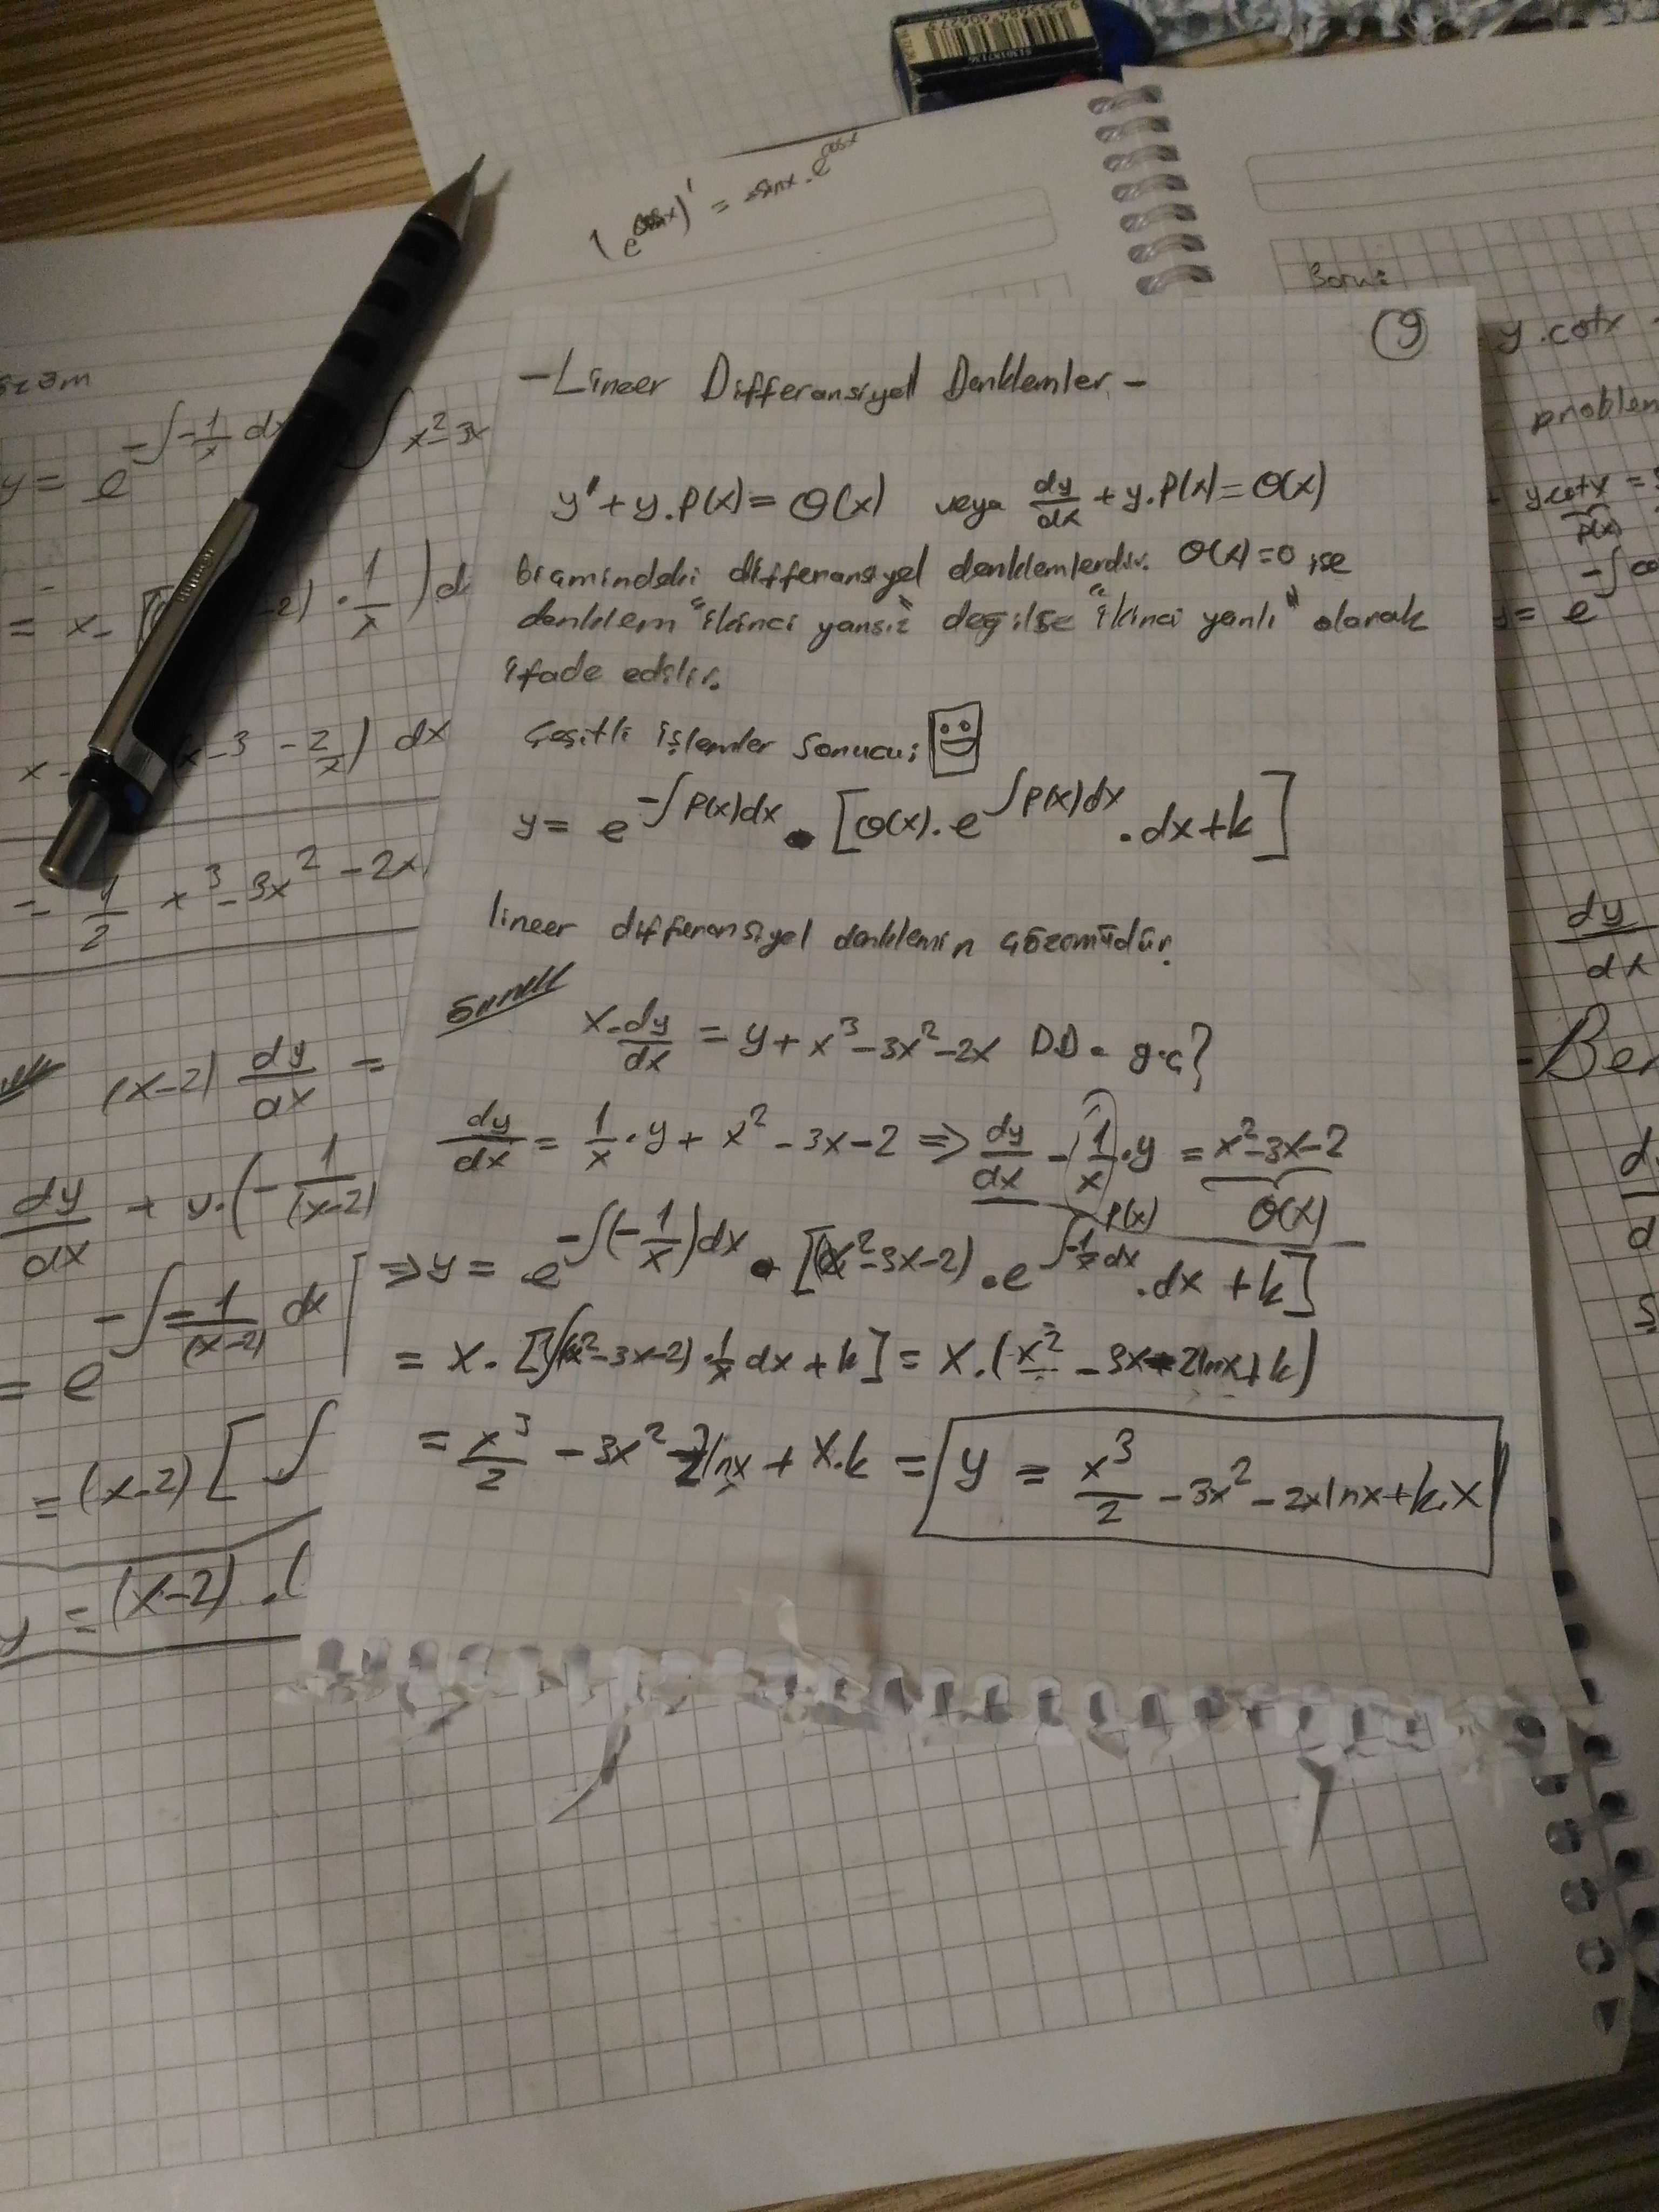 (e^cosx)' = -sinx.e^cosx
9
-Lineer Differansiyel Denklemler.-
y' + y.P(x) = Q(x) veya dy/dx + y.P(x) = Q(x)
biçimindeki differansiyel denklemlerdir. Q(x)=0 ise
denklem "ikinci yansız" değilse "ikinci yanlı" olarak
ifade edilir.
Çeşitli işlemler sonucu;
y = e^-∫P(x)dx . [Q(x).e^∫P(x)dx .dx+k]
lineer differansiyel denklemin çözümüdür.
Örnek
x.dy/dx = y + x³-3x²-2x D.D. g.ç?
dy/dx = 1/x . y + x² - 3x - 2 ⇒ dy/dx - (1/x).y = x²-3x-2
P(x) Q(x)
⇒ y = e^-∫(-1/x)dx . [(x²-3x-2) .e^∫-1/x dx .dx + k]
= x. [∫(x²-3x-2).1/x dx + k] = x.(x²/ - 3x - 2lnx + k)
= x³/2 - 3x² - 2lnx + x.k = y = x³/2 - 3x² - 2xlnx + k.x
y = e^-∫-1/x dx ∫ x²-3x
= x- -2) . 1/x ) d
x- x-3 - 2/x) dx
= 1/2 x³-3x² -2x
(x-2) dy/dx =
dy/dx + y.(- 1/(x-2)
= e^-∫-1/(x-2) dx [
=(x-2) [ ∫
y = (x-2) .(
Soru:
y.cotx
problem
y.cotx =
P(x)
y = e^-∫co
dy/dx
-Ber